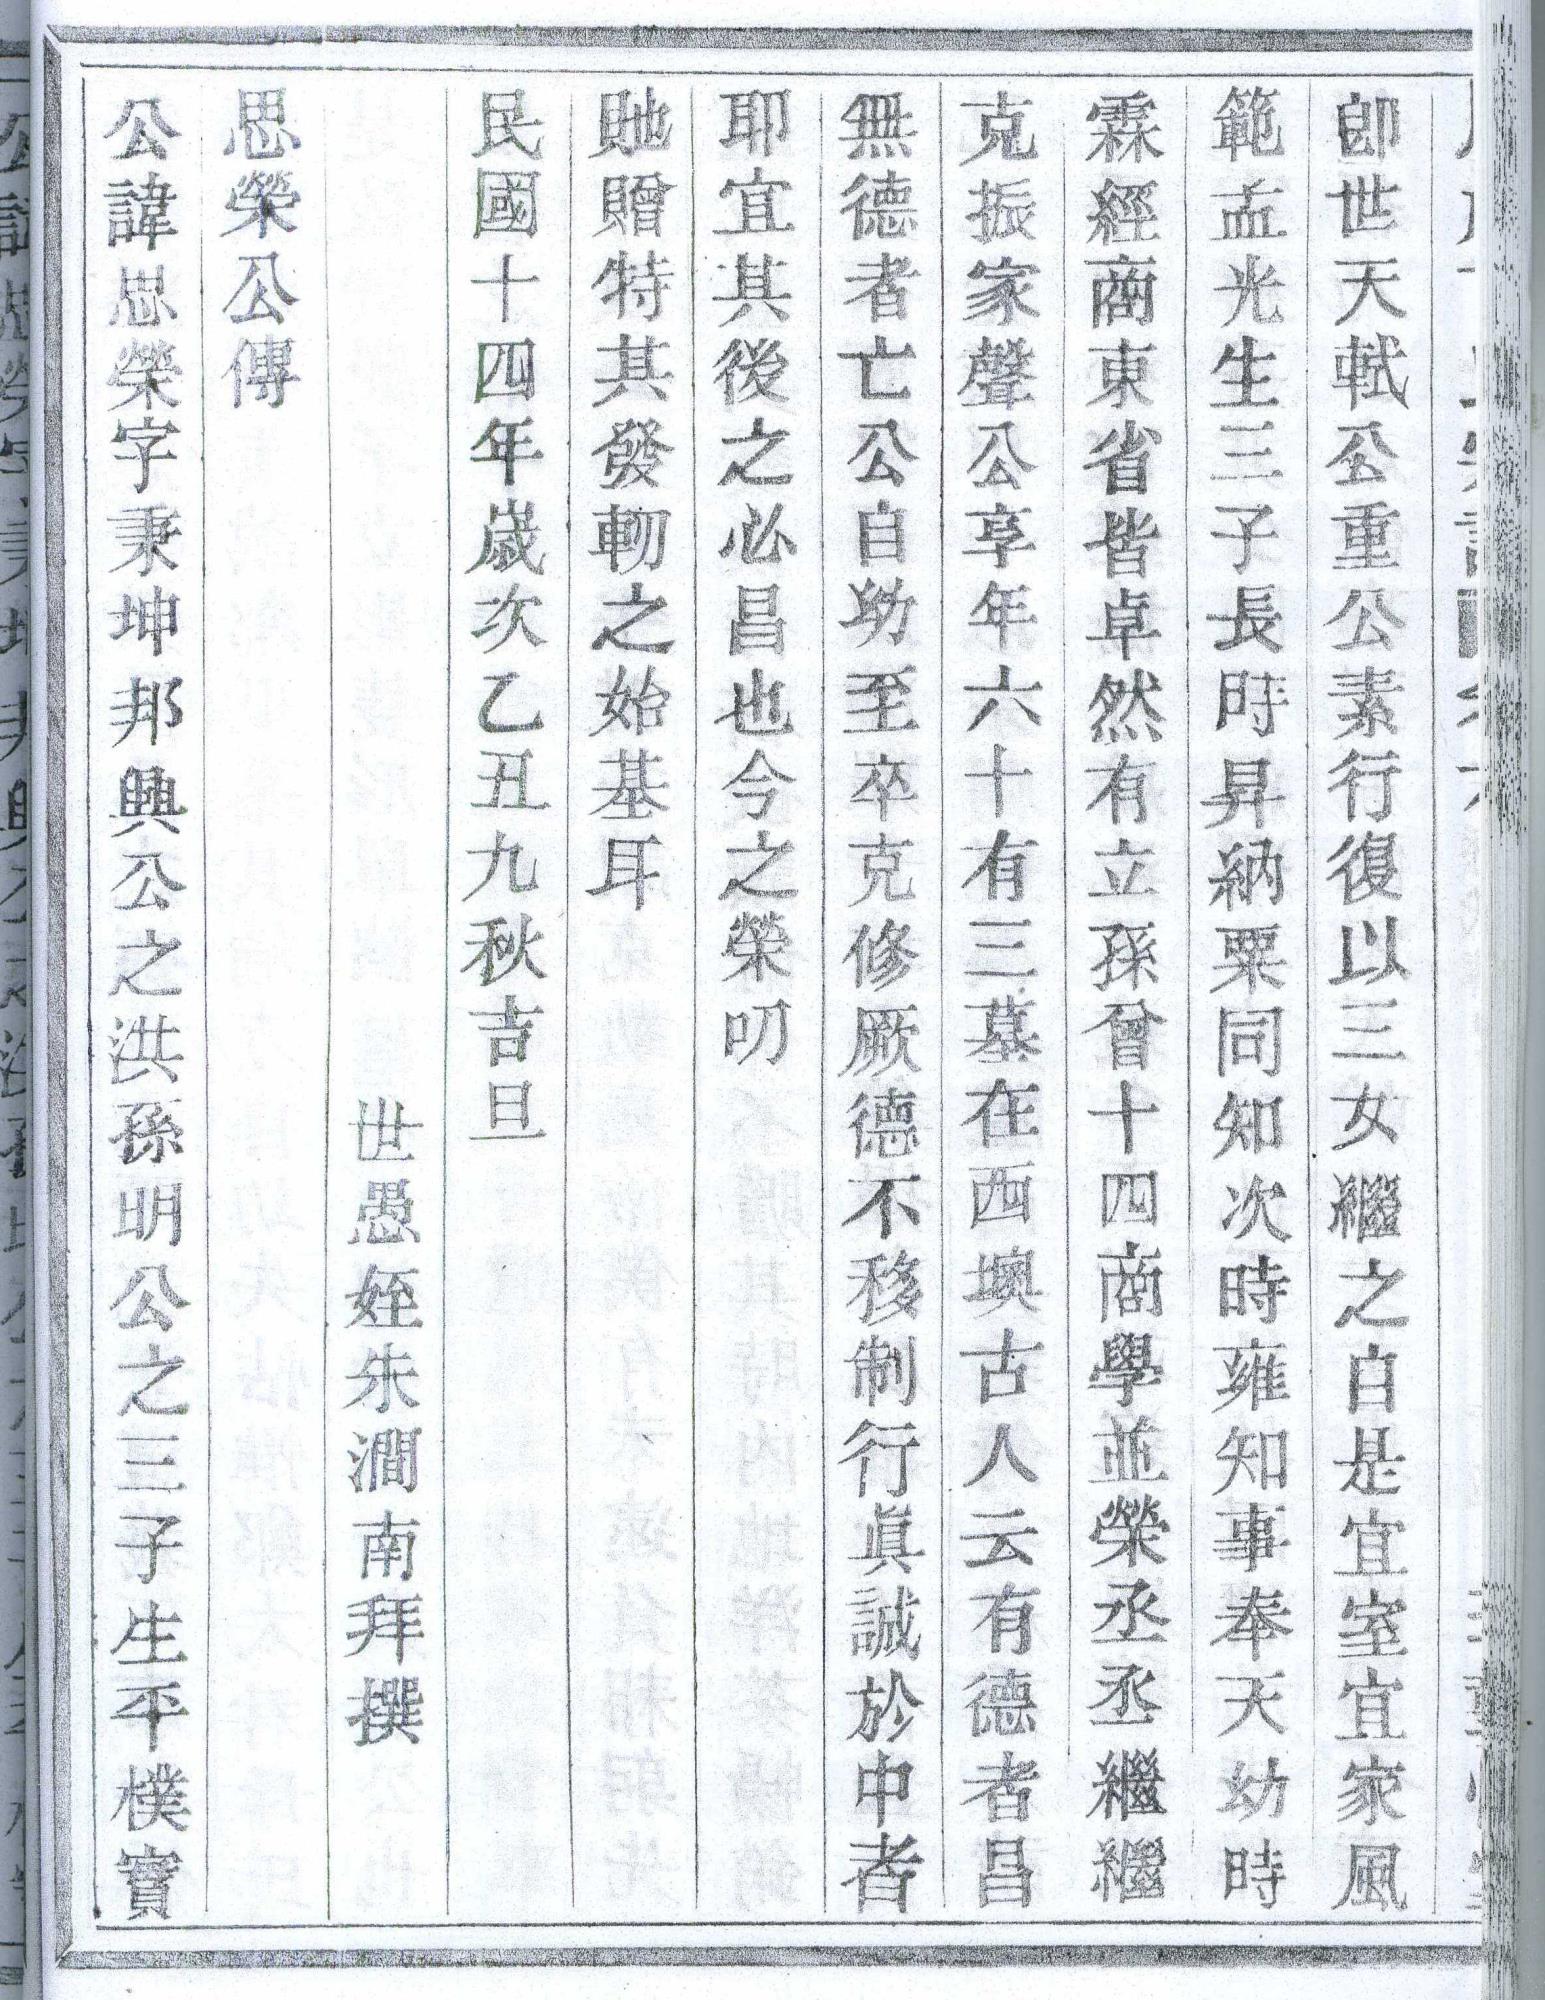 即世天軾公重公素行復以三女繼之自是宜室宜家風
範孟光生三子長時昇納粟同知次時雍知事奉天幼時
霖經商東省皆卓然有立孫曾十四商學並榮丞丞繼繼
克振家聲公享年六十有三墓在西墺古人云有德者昌
無德者亡公自幼至卒克修厥德不移制行眞誠於中者
耶宜其後之必昌也今之榮叨
貤贈特其發軔之始基耳
民國十四年歲次乙丑九秋吉旦
世愚姪朱澗南拜撰
思榮公傳
公諱思榮字秉坤邦興公之洪孫明公之三子生平樸實